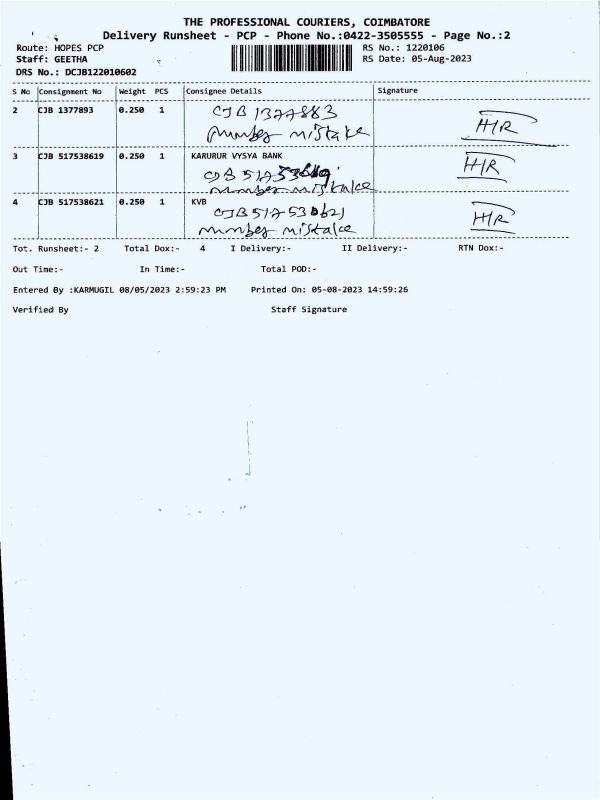 THE PROFESSIONAL COURIERS, COIMBATORE
Delivery Runsheet - PCP - Phone No.:0422-3505555 - Page No.:2
Route: HOPES PCP RS No.: 1220106
Staff: GEETHA RS Date: 05-Aug-2023
DRS No.: DCJB122010602
S No Consignment No Weight PCS Consignee Details Signature
2 CJB 1377893 0.250 1 CJB 1377883
number mistake HR
3 CJB 517538619 0.250 1 KARURUR VYSYA BANK HR
CJB
number mistake
4 CJB 517538621 0.250 1 KVB
CJB 517530621 HR
number mistake
Tot. Runsheet:- 2 Total Dox:- 4 I Delivery:- II Delivery:- RTN Dox:-
Out Time:- In Time:- Total POD:-
Entered By :KARMUGIL 08/05/2023 2:59:23 PM Printed On: 05-08-2023 14:59:26
Verified By Staff Signature